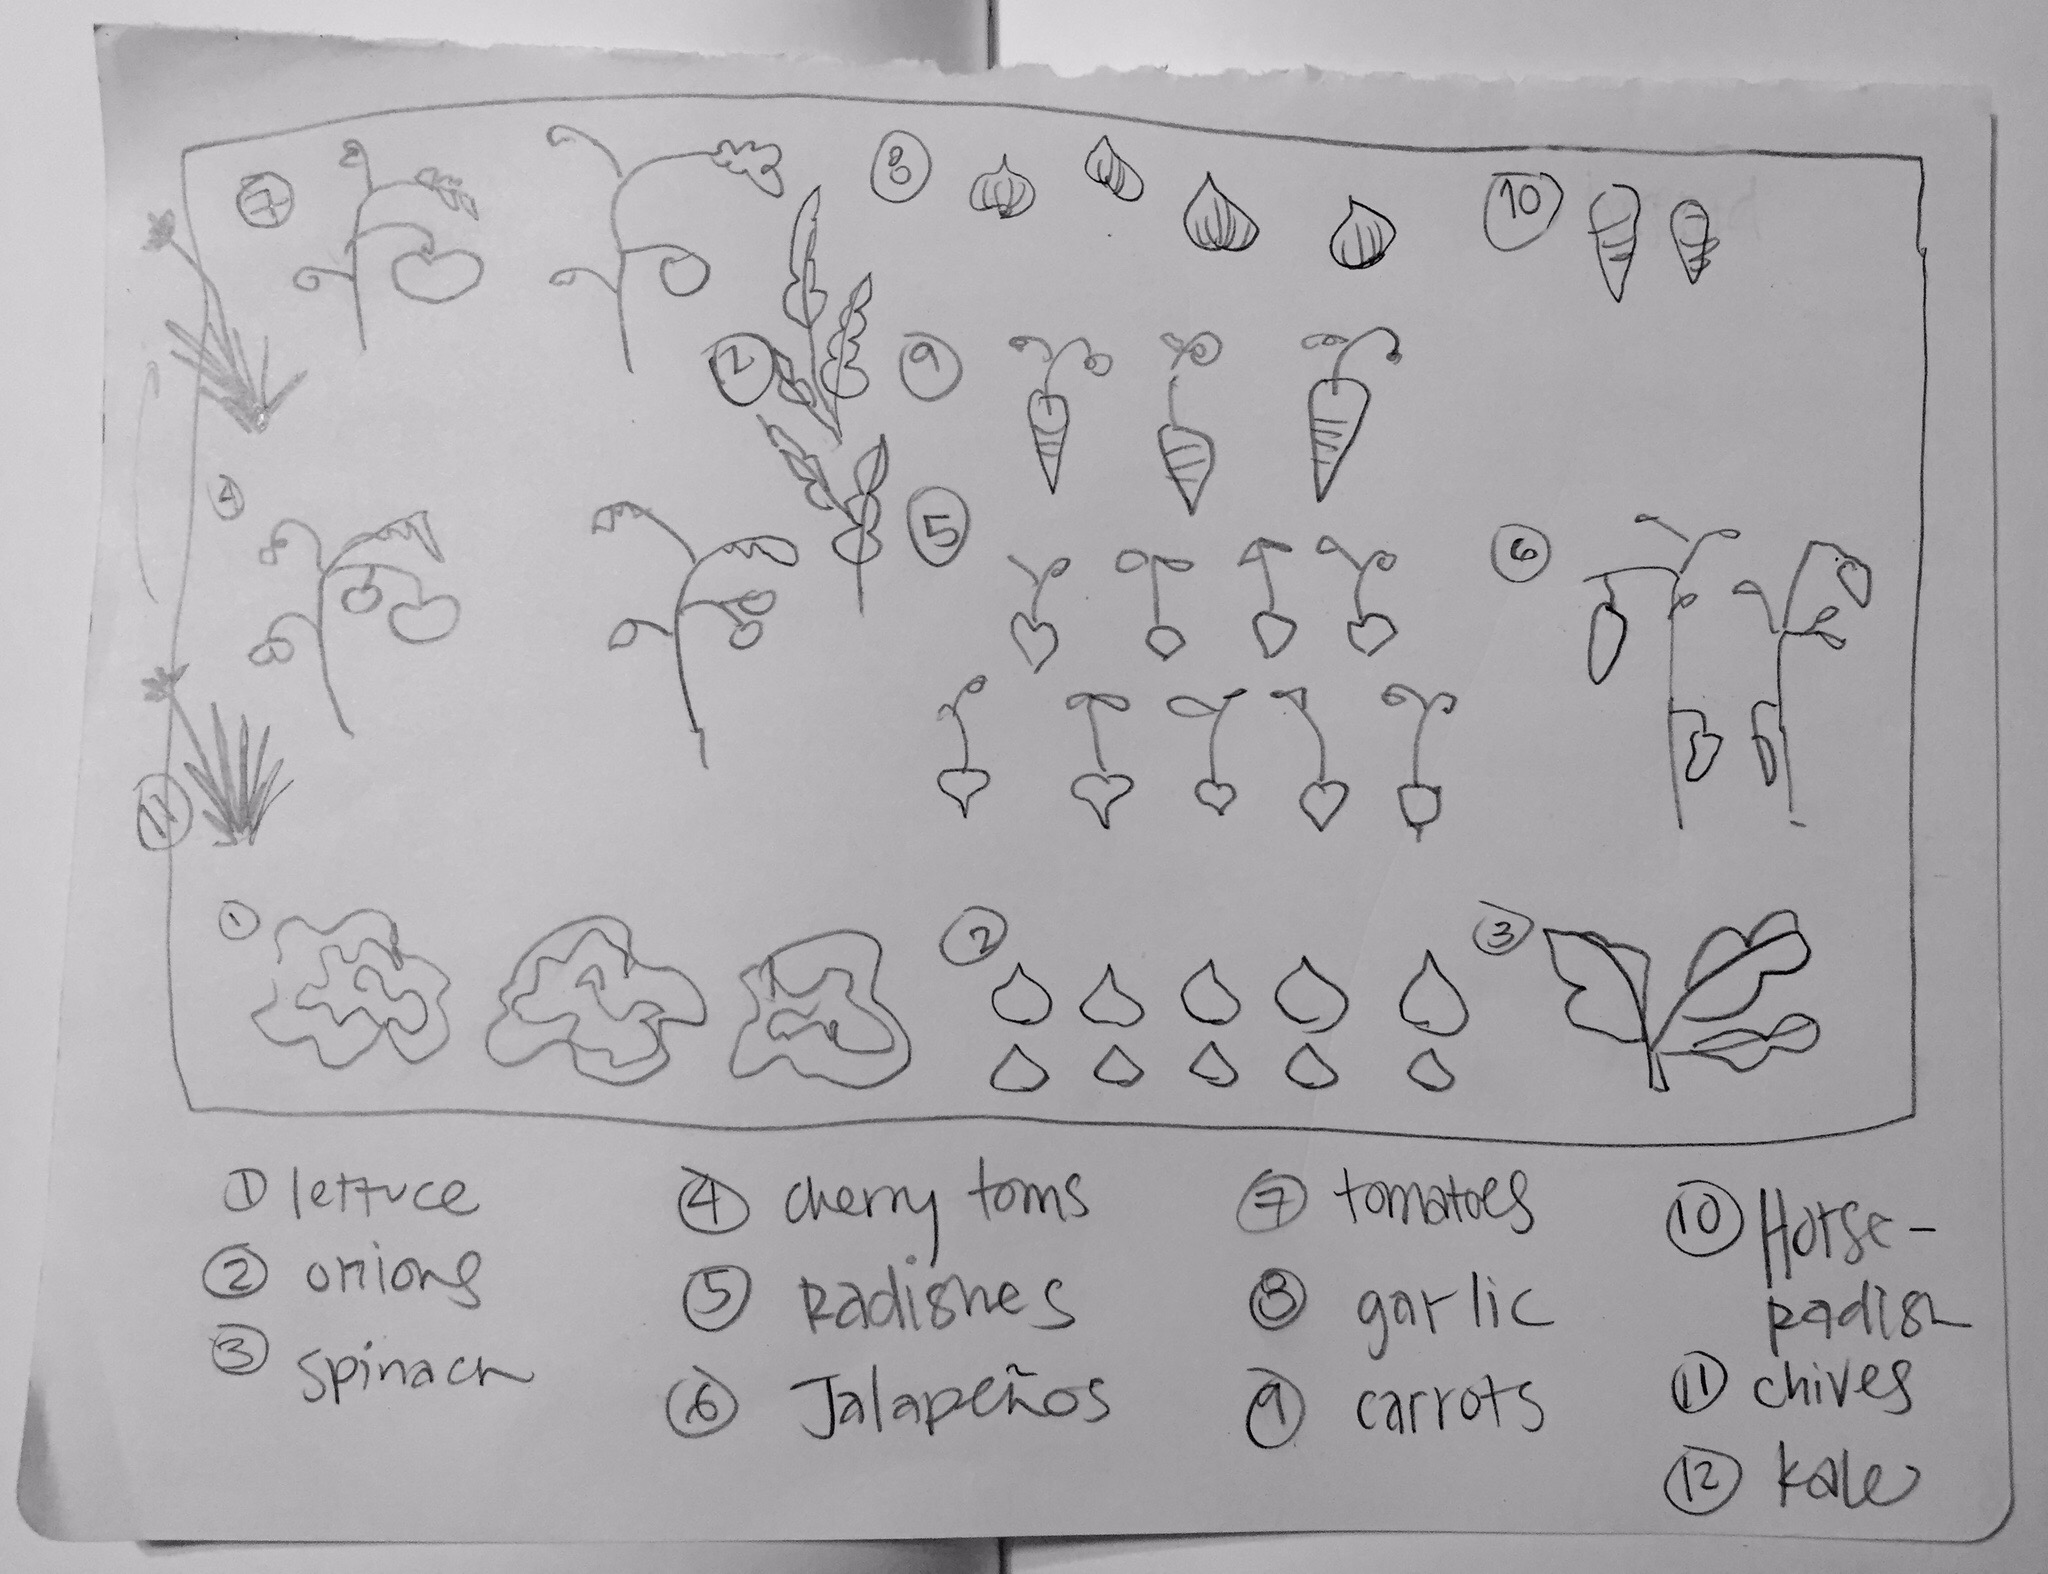 7
8
10
12
9
4
5
6
11
1
2
3
① lettuce
② onions
③ spinach
④ cherry toms
⑤ Radishes
⑥ Jalapeños
⑦ tomatoes
⑧ garlic
⑨ carrots
⑩ Horse-
Radish
⑪ chives
⑫ kale